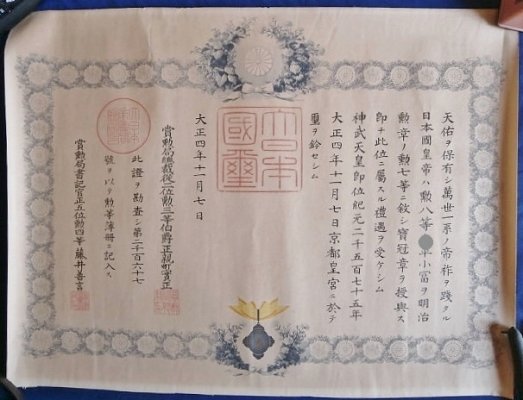 天佑ヲ保有シ萬世一系ノ帝祚ヲ踐タル
日本國皇帝ハ勲八等 小富ヲ明治
勲章ノ勲七等ニ敍シ寶冠章ヲ授與ス
即チ此位ニ屬スル禮遇ヲ受ケシム
神武天皇即位紀元二千五百七十五年
大正四年十一月七日京都皇宮ニ於テ
璽ヲ鈐セシム
大日本
國璽
大正四年十一月七日
賞勲局總裁從二位勲三等伯爵正親町實正
此證ヲ勘査シ第二千百六十七
號ヲ以テ勲等簿冊ニ記入ス
賞勲局書記官正五位勲四等 藤井善言